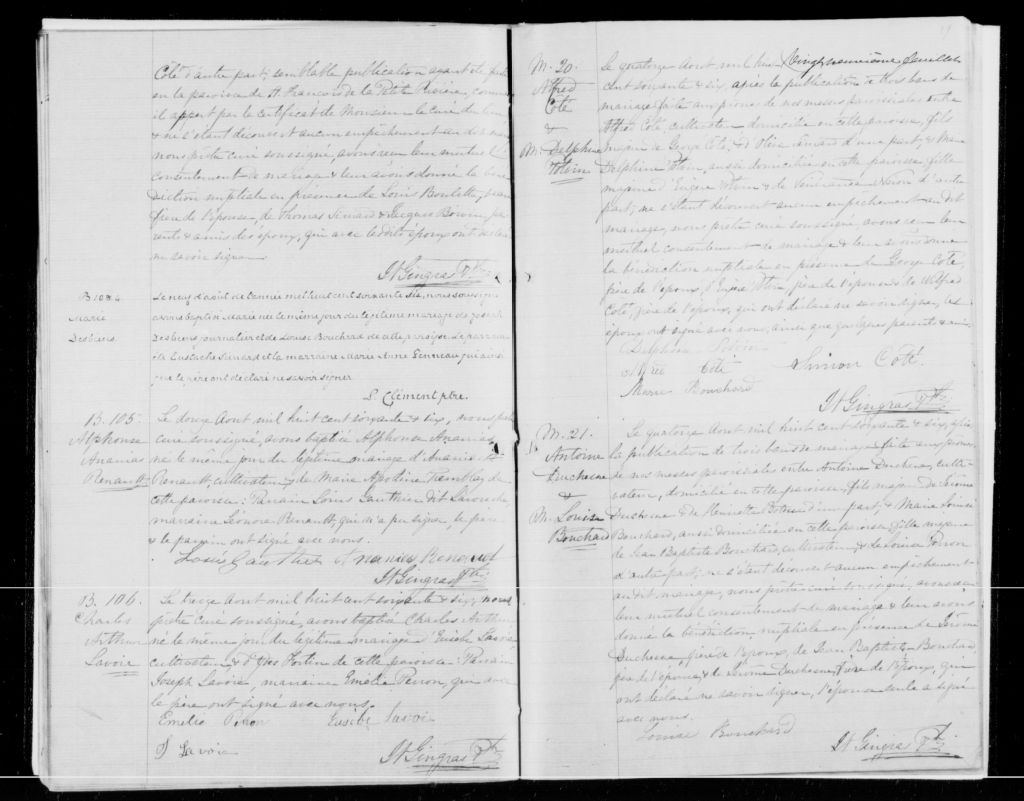 Coté d'autre part; semblable publication ayant été faite
en la paroisse de St François de la Petite Rivière, comme
il appert par le certificat de Monsieur le curé du lieu
& ne s'étant découvert aucun empêchement au dit mariage
nous prêtre curé soussigné, avons reçu leur mutuel
consentement de mariage & leur avons donné la béné
diction nuptiale en présence de Louis Boulette,
père de l'épouse, de Thomas Simard & Jacques Bouin pa
rents & amis des époux, qui avec lesdits époux ont déclaré
ne savoir signer
Jt Gingras Ptre
B. 104
Marie
Desbiens
Le neuf d'août de l'année mil huit cent soixante six, nous soussigné
avons baptisé Marie née le même jour du légitime mariage de Joseph
Desbiens journalier et de Louise Bouchard de cette paroisse. Le parrain
a été Eustache Simard et la marraine Marie Anne qui ainsi
que le père ont déclaré ne savoir signer.
L. Clément ptre.
B. 105
Alphonse
Ananias
Renault
Le douze Aout mil huit cent soixante & six, nous prêtre
curé soussigné, avons baptisé Alphonse Ananias
né le même jour du légitime mariage d'Ananias
Renault cultivateur & de Marie Apoline Tremblay de
cette paroisse: Parrain Louis Gauthier dit Larouche
marraine Léonore Renault, qui n'a pu signer, le père
& le parrain ont signé avec nous.
Louis Gauthier Ananias Renault
Jt Gingras Ptre
B. 106.
Charles
Arthur
Lavoie
Le treize Aout mil huit cent soixante & six, nous
prêtre curé soussigné, avons baptisé Charles Arthur
né le même jour du légitime mariage d'Eusèbe Lavoie
cultivateur & d' Fortin de cette paroisse: Parrain
Joseph Lavoie, marraine Emélie Perron, qui avec
le père ont signé avec nous.
Emélie Perron Eusèbe Lavoie
J Lavoie
Jt Gingras Ptre
Vingt neuvième feuillet
M. 20.
Alfred
Coté
&
M. Delphine
Potvin
Le quatorze Aout mil huit
cent soixante & six, après la publication de trois bans de
mariage faite aux prônes de nos messes paroissiales entre
Alfred Coté, cultivateur domicilié en cette paroisse, fils
majeur de George Coté, & d'Olive Simard d'une part; & Marie
Delphine Potvin, aussi domiciliée en cette paroisse, fille
majeure d'Eugène Potvin & de d'autre
part; ne s'étant découvert aucun empêchement au dit
mariage, nous prêtre curé soussigné avons reçu leur
mutuel consentement de mariage & leur avons donné
la bénédiction nuptiale en présence de George Coté,
père de l'époux, d'Eugène Potvin, père de l'épouse & de Wilfred
Coté, frère de l'époux, qui ont déclaré ne savoir signer, les
époux ont signé avec nous, ainsi que quelques parents & amis.
Delphine Potvin
Alfred Coté Simon Coté
Marie Bouchard
Jt Gingras Ptre
M. 21.
Antoine
Duchesne
&
M. Louise
Bouchard
Le quatorze Aout mil huit cent soixante & six, après
la publication de trois bans de mariage faite aux prônes
de nos messes paroissiales entre Antoine Duchesne, culti-
vateur, domicilié en cette paroisse, fils majeur de Jérome
Duchesne & de Henriette d'une part; & Marie Louise
Bouchard, aussi domiciliée en cette paroisse, fille majeure
de Jean Baptiste Bouchard, cultivateur, & de Louise Perron
d'autre part; ne s'étant découvert aucun empêchement
au dit mariage, nous prêtre curé soussigné, avons reçu
leur mutuel consentement de mariage & leur avons
donné la bénédiction nuptiale en présence de Jérome
Duchesne, père de l'époux, de Jean Baptiste Bouchard,
père de l'épouse & de Jérome Duchesne, frère de l'époux, qui
ont déclaré ne savoir signer, l'épouse seule a signé
avec nous.
Louise Bouchard
Jt Gingras Ptre